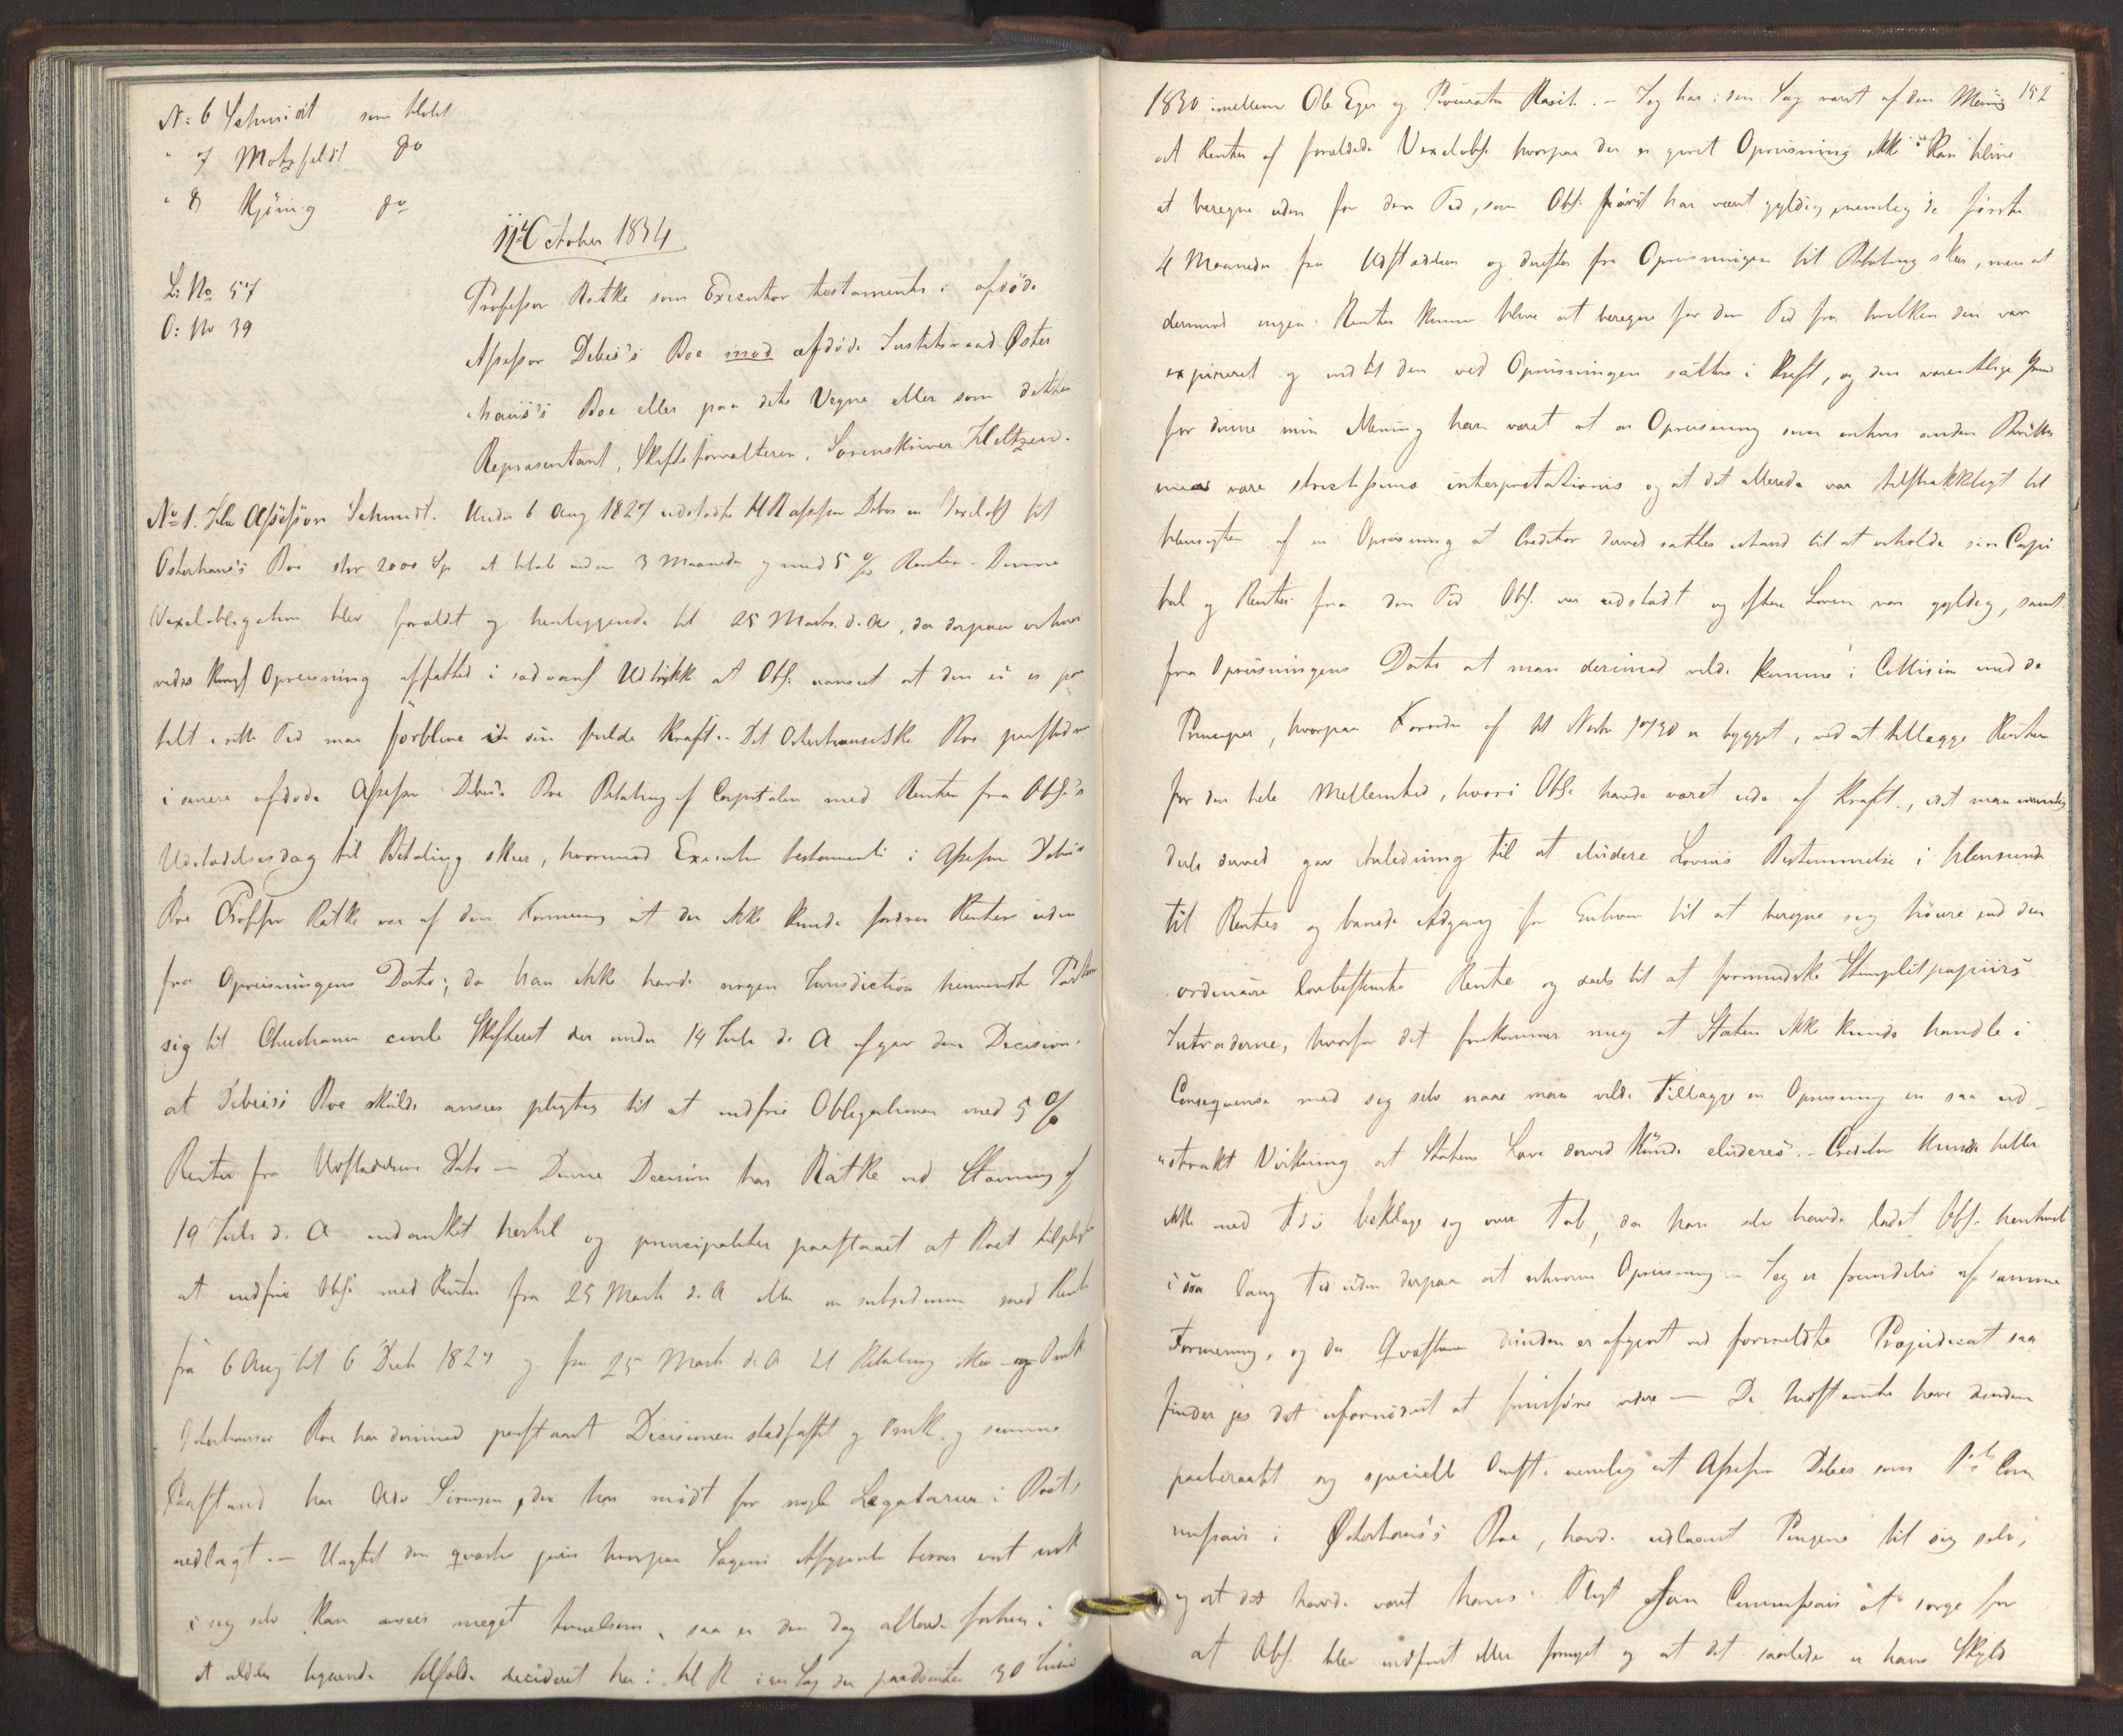 N: 6 Schmidt som Hoist
" 7 Motzfeldt do
" 8 Kjönig do
11 October 1834
L: No 57
O: No 39
Professor Ratke som Executor testamenti i afdöde
Assessor Debes's Boe imod afdöde Justitsraad Öster
haus's Boe eller paa dets Vegne eller som dettes
Repræsentant, Skifteforvalteren, Sorenskriver Heltzen.
No 1. Assessor Schmidt. Under 6 Aug 1827 udstædte HR assessor Debes en Vexelobl til
Osterhaus's Boe stor 2000 Sp at betale inden 3 Maaneder og med 5 % Renter. Denne
Vexelobligation blev forældt og henliggende til 25 Marts d. A, da derpaa erhver
vedes Kongl Opreisning affattet i saadant Udtrykk at Obl. uanseet at den ei er paa
talt i rette Tid maa forblive i sin fulde Kraft. Det Osterhausiske Boe paastod nu
i afdöde Assessor Debes's Boe Betaling af Capitalen med Renter fra Obl's
Udstædelsesdag til Betaling skeer, hvorimod Executor testamenti i Assessor Debes's
Boe Professor Ratke var af den Formening at der ikke kunde fordres Renter uden
fra Opreisningens Dato; da han ikke havde nogen Jurisdiction henvendte Parterne
sig til Christiania civile Skifteret der under 14 Juli d. A afgav den Decision
at Debes's Boe skulde ansees pligtig til at indfrie Obligationen med 5 %
Renter fra Udstædelsens Dato — Denne Decision har Ratke ved Stævning af
19 Juli d. A indanket hertil og principaliter paastaaet at Boet tilpligtes
at indfrie Obl. med Renter fra 25 Marts d. A eller in subsidium med Renter
fra 6 Aug til 6 Decb 1827 og fra 25 Marts d. A til Betaling skeer og Omk
Osterhauses Boe har derimod paastaaet Decisionen stadfæstet og Omk. og samme
Paastand har Adv Sörensen, der har mödt for nogle Legatarier i Boet,
nedlagt. — Uagtet den qvæstio juris hvorpaa Sagens Afgjörelse beroer vist nok
i sig selv kan ansees meget tvivlsom, saa er den dog allerede forhen i
et aldeles lignende Tilfælde decideret her i H R i en Sag der paadömtes 30 Juni
152
1830 imellem Ole Eger og Procurator Rasch. — Jeg har i den Sag været af den Mening
at Renter af forældede Vexelobl. hvorpaa der er givet Opreisning ikke kan blive
at beregne uden for den Tid, som Obl. först har været gyldig, nemlig de förste
4 Maaneder fra Udstædelsen og derefter fra Opreisningen til Betaling skeer, men at
derimod ingen Renter kunne blive at beregne for den Tid fra hvilken den var
expireret og indtil den ved Opreisningen sættes i Kraft, og den væsentlige Grund
for denne min Mening har været at en Opreisning som enhver anden Bevilling
maa være strictissimæ interpretationis og at det allerede var tilstrækkeligt til
Hensigten af en Opreisning at Creditor derved sattes istand til at erholde sin Capi
tal og Renter fra den Tid Obl. var udstædt og efter Loven var gyldig, samt
fra Opreisningens Dato at man derimod vilde komme i Collision med de
Principer, hvorpaa Forordn af 11 Novbr 1730 er bygget, ved at tillægge Renter
for den hele Mellemtid, hvori Obl. havde været ude af Kraft, idet man nemlig
deels derved gav Anledning til at eludere Lovens Bestemmelse i Henseende
til Renter og banede Adgang for Enhver til at beregne sig höiere end den
ordinaire lovbestemte Rente og deels til at formindske Stempletpapiirs
Intraderne, hvorfor det forekommer mig at Staten ikke kunde handle i
Conseqvense med sig selv naar man vilde tillægge en Opreisning en saa ud-
strakt Virkning at Statens Love derved kunde eluderes. — Creditor kunde heller
ikke med Föie beklage sig over Tab, da han selv havde ladet Obl. henhvile
i saa lang Tid uden derpaa at erhverve Opreisning — Jeg er fremdeles af samme
Formening, og da Qvæstionen desuden er afgjort ved formeldte Præjudicat saa
finder jeg det ufornödent at fremföre videre — De Indstævnte have desuden
paaberaabt sig specielle Omst. nemlig at Assessor Debes som Com
missair i Österhaus's Boe, havde udlaant Pengene til sig selv,
og at det havde været hans Pligt som Commissair at sorge for
at Obl. blev indfriet eller fornyet og at det saaledes er hans Skyld